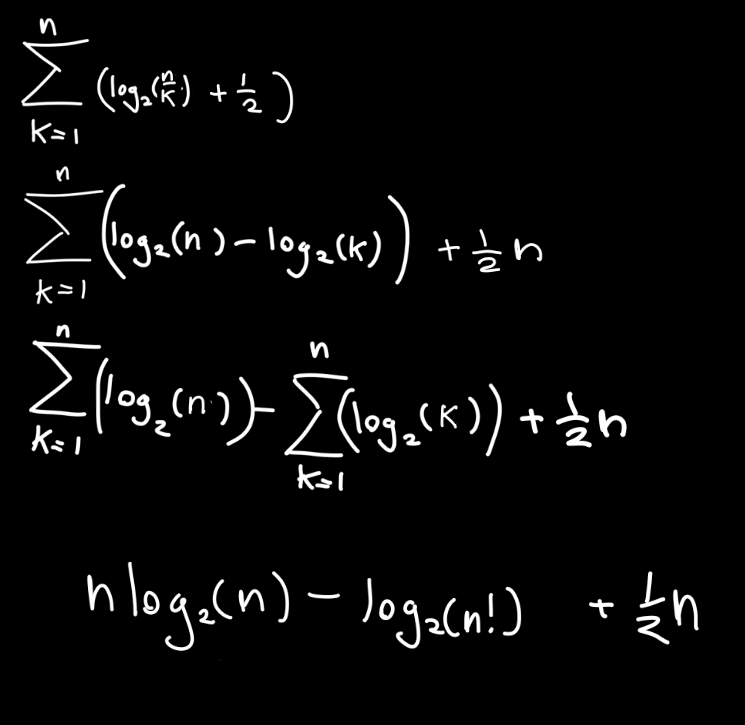 \sum_{k=1}^{n} (log₂(n/k) + 1/2)
\sum_{k=1}^{n} (log₂(n) - log₂(k)) + 1/2 n
\sum_{k=1}^{n} (log₂(n)) - \sum_{k=1}^{n} (log₂(k)) + 1/2 n
n log₂(n) - log₂(n!) + 1/2 n